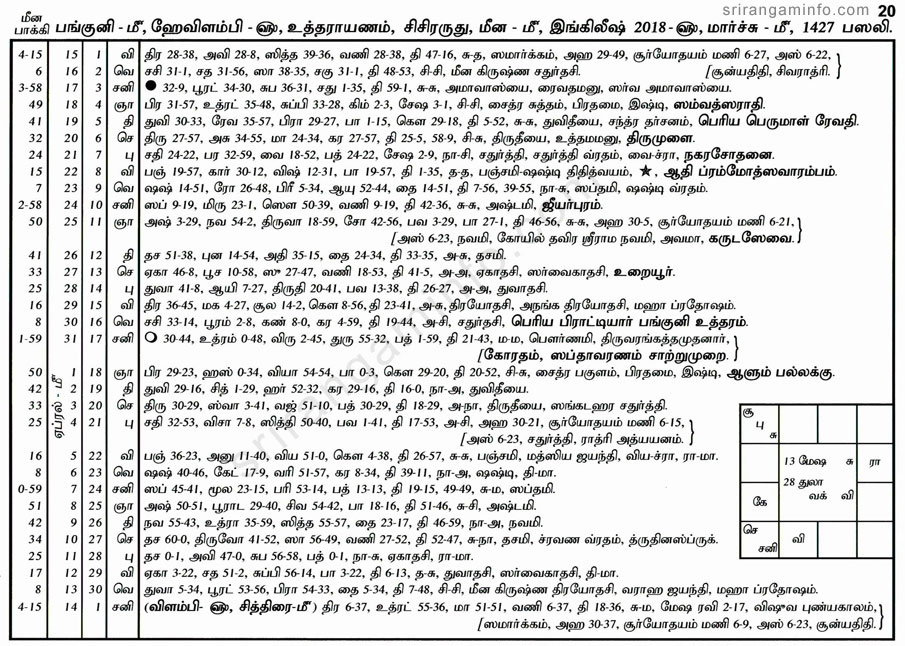 srirangaminfo.com 20
மீன பாக்கி பங்குனி - மீ, ஹேவிளம்பி - ௵, உத்தராயணம், சிசிரருது, மீன - மீ, இங்கிலீஷ் 2018-௵, மார்ச்சு - மீ, 1427 பஸலி.
4-15 15 1 வி திர 28-38, அவி 28-8, ஸித்த 39-36, வணி 28-38, தி 47-16, சு-த, ஸமார்க்கம், அஹ 29-49, சூர்யோதயம் மணி 6-27, அஸ் 6-22,
6 16 2 வெ சசி 31-1, சத 31-56, ஸா 38-35, சகு 31-1, தி 48-53, சி-சி, மீன கிருஷ்ண சதுர்தசி. [சூன்யதிதி, சிவராத்ரி.}
3-58 17 3 சனி ● 32-9, பூரட் 34-30, சுப 36-31, சது 1-35, தி 59-1, சு-சு, அமாவாஸ்யை, ரைவதமனு, ஸர்வ அமாவாஸ்யை.
49 18 4 ஞா பிர 31-57, உத்ரட் 35-48, சுப்பி 33-28, கிம் 2-3, சேஷ 3-1, சி-சி, சைத்ர சுத்தம், பிரதமை, இஷ்டி, ஸம்வத்ஸராதி.
41 19 5 தி துவி 30-33, ரேவ 35-57, பிரா 29-27, பா 1-15, கௌ 29-18, தி 5-52, சு-சு, துவிதீயை, சந்த்ர தர்சனம், பெரிய பெருமாள் ரேவதி.
32 20 6 செ திரு 27-57, அசு 34-55, மா 24-34, கர 27-57, தி 25-5, 58-9, சி-சு, திருதீயை, உத்தமமனு, திருமுளை.
24 21 7 பு சதி 24-22, பர 32-59, வை 18-52, பத் 24-22, சேஷ 2-9, நா-சி, சதுர்த்தி, சதுர்த்தி வ்ரதம், வை-ச்ரா, நகரசோதனை.
15 22 8 வி பஞ் 19-57, கார் 30-12, விஷ் 12-31, பா 19-57, தி 1-35, த-த, பஞ்சமி-ஷஷ்டி திதித்வயம், ★, ஆதி ப்ரம்மோத்ஸவாரம்பம்.
7 23 9 வெ ஷஷ் 14-51, ரோ 26-48, பிரீ 5-34, ஆயு 52-44, தை 14-51, தி 7-56, 39-55, நா-சு, ஸப்தமி, ஷஷ்டி வ்ரதம்.
2-58 24 10 சனி ஸப் 9-19, மிரு 23-1, ஸௌ 50-39, வணி 9-19, தி 42-36, சு-சு, அஷ்டமி, ஜீயர்புரம்.
50 25 11 ஞா அஷ் 3-29, நவ 54-2, திருவா 18-59, சோ 42-56, பவ 3-29, பா 27-1, தி 46-56, சு-சு, அஹ 30-5, சூர்யோதயம் மணி 6-21,
[அஸ் 6-23, நவமி, கோயில் தவிர ஸ்ரீராம நவமி, அவமா, கருடஸேவை.}
41 26 12 தி தச 51-38, புன 14-54, அதி 35-15, தை 24-34, தி 33-35, அ-சு, தசமி.
33 27 13 செ ஏகா 46-8, பூச 10-58, ஸு 27-47, வணி 18-53, தி 41-5, அ-அ, ஏகாதசி, ஸர்வைகாதசி, உறையூர்.
25 28 14 பு துவா 41-8, ஆயி 7-27, திருதி 20-41, பவ 13-38, தி 26-27, அ-அ, துவாதசி.
16 29 15 வி திர 36-45, மக 4-27, சூல 14-2, கௌ 8-56, தி 23-41, அ-சு, திரயோதசி, அநங்க திரயோதசி, மஹா ப்ரதோஷம்.
8 30 16 வெ சசி 33-14, பூரம் 2-8, கண் 8-0, கர 4-59, தி 19-44, அ-சி, சதுர்தசி, பெரிய பிராட்டியார் பங்குனி உத்தரம்.
1-59 31 17 சனி ○ 30-44, உத்ரம் 0-48, விரு 2-45, துரு 55-32, பத் 1-59, தி 21-43, ம-ம, பௌர்ணமி, திருவரங்கத்தமுதனார்,
[கோரதம், ஸப்தாவரணம் சாற்றுமுறை.}
ஏப்ரல் - மீ
50 1 18 ஞா பிர 29-23, ஹஸ் 0-34, வியா 54-54, பா 0-3, கௌ 29-20, தி 20-52, சி-சு, சைத்ர பகுளம், பிரதமை, இஷ்டி, ஆளும் பல்லக்கு.
42 2 19 தி துவி 29-16, சித் 1-29, ஹர் 52-32, கர 29-16, தி 16-0, நா-அ, துவிதீயை.
33 3 20 செ திரு 30-29, ஸ்வா 3-41, வஜ் 51-10, பத் 30-29, தி 18-29, அ-நா, திருதீயை, ஸங்கடஹர சதுர்த்தி.
25 4 21 பு சதி 32-53, விசா 7-8, ஸித்தி 50-40, பவ 1-41, தி 17-53, அ-சி, அஹ 30-21, சூர்யோதயம் மணி 6-15,
[அஸ் 6-23, சதுர்த்தி, ராத்ரி அத்யயனம்.}
16 5 22 வி பஞ் 36-23, அனு 11-40, விய 51-0, கௌ 4-38, தி 26-57, சு-சு, பஞ்சமி, மத்ஸிய ஜயந்தி, விய-ச்ரா, ரா-மா.
8 6 23 வெ ஷஷ் 40-46, கேட் 17-9, வரி 51-57, கர 8-34, தி 39-11, நா-அ, ஷஷ்டி, தி-மா.
0-59 7 24 சனி ஸப் 45-41, மூல 23-15, பரி 53-14, பத் 13-13, தி 19-15, 49-49, சு-ம, ஸப்தமி.
51 8 25 ஞா அஷ் 50-51, பூராட 29-40, சிவ 54-42, பா 18-16, தி 51-46, சு-சி, அஷ்டமி.
42 9 26 தி நவ 55-43, உத்ரா 35-59, ஸித்த 55-57, தை 23-17, தி 46-59, நா-அ, நவமி.
34 10 27 செ தச 60-0, திருவோ 41-52, ஸா 56-49, வணி 27-52, தி 52-47, சு-நா, தசமி, ச்ரவண வ்ரதம், த்ருதினஸ்ப்ருக்.
25 11 28 பு தச 0-1, அவி 47-0, சுப 56-58, பத் 0-1, நா-சு, ஏகாதசி, ரா-மா.
17 12 29 வி ஏகா 3-22, சத 51-2, சுப்பி 56-14, பா 3-22, தி 6-13, த-சு, துவாதசி, ஸர்வைகாதசி, தி-மா.
8 13 30 வெ துவா 5-34, பூரட் 53-56, பிரா 54-33, தை 5-34, தி 7-48, சி-சி, மீன கிருஷ்ண திரயோதசி, வராஹ ஜயந்தி, மஹா ப்ரதோஷம்.
4-15 14 1 சனி (விளம்பி- ௵, சித்திரை-மீ) திர 6-37, உத்ரட் 55-36, மா 51-51, வணி 6-37, தி 18-36, சு-ம, மேஷ ரவி 2-17, விஷுவ புண்யகாலம்,
[ஸமார்க்கம், அஹ 30-37, சூர்யோதயம் மணி 6-9, அஸ் 6-23, சூன்யதிதி.}
சூ பு சு
13 மேஷ சு ரா
28 துலா
கே வக் வி
செ சனி வி
srirangaminfo.com